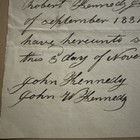 Robert Kennedy
of September 188
have hereunto s
this 3 day of Nove
John Kennedy
John W Kennedy